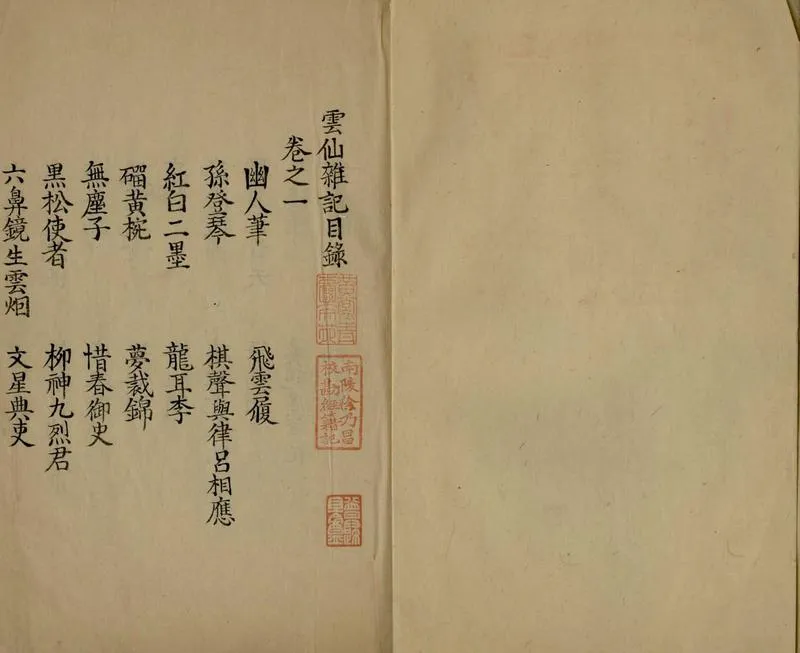 雲仙雜記目錄
南陵徐乃昌
校勘經籍記
卷之一
幽人筆　飛雲履
孫登琴　棋聲與律呂相應
紅白二墨　龍耳李
磂黃椀　夢裁錦
無塵子　惜春御史
黑松使者　柳神九烈君
六鼻鏡生雲烟　文星典吏